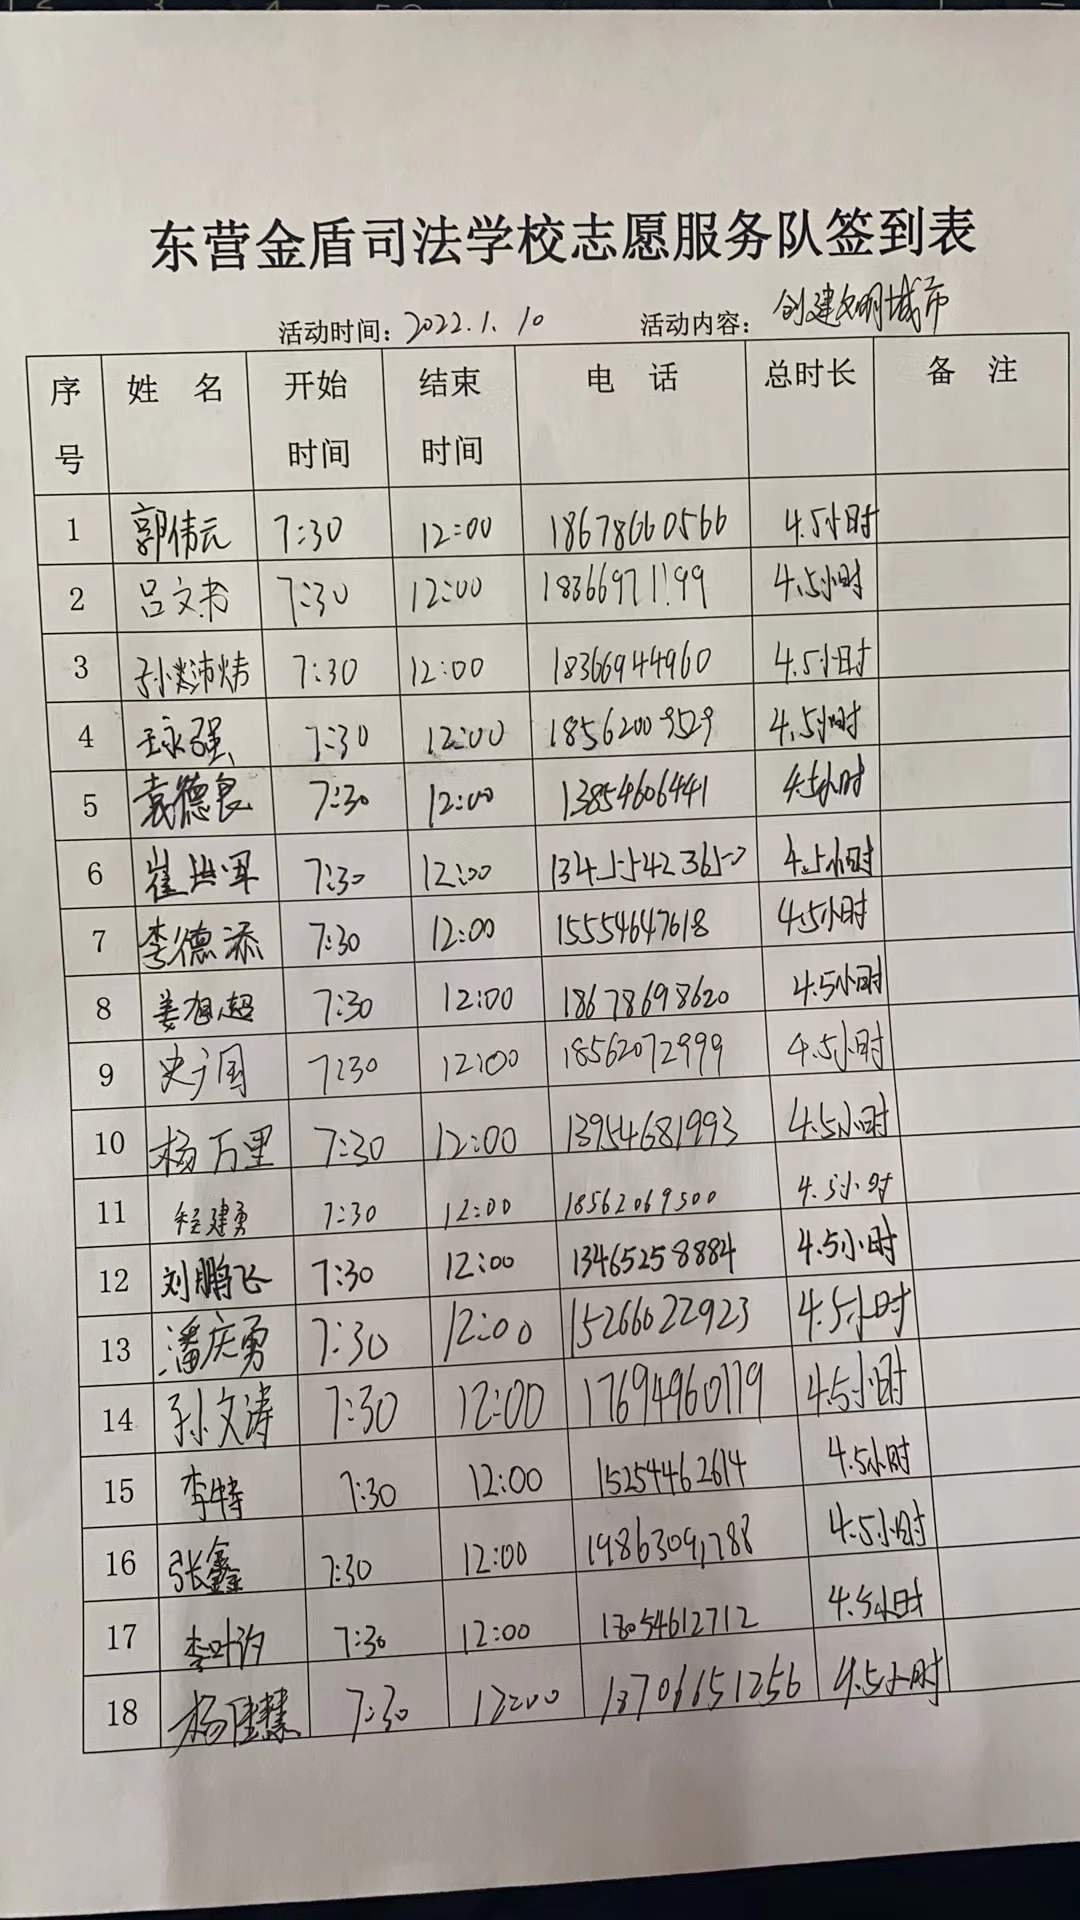 东营金盾司法学校志愿服务队签到表
活动时间：2022.1.10 活动内容：创建文明城市
序号 姓 名 开始时间 结束时间 电 话 总时长 备 注
1 郭伟元 7:30 12:00 18678660566 4.5小时
2 吕文书 7:30 12:00 18366971199 4.5小时
3 7:30 12:00 18366944960 4.5小时
4 王永强 7:30 12:00 18562009529 4.5小时
5 袁德良 7:30 12:00 13854606441 4.5小时
6 7:30 12:00 13455423650 4.5小时
7 李德添 7:30 12:00 15554647618 4.5小时
8 姜旭超 7:30 12:00 18678698620 4.5小时
9 史广国 7:30 12:00 18562072999 4.5小时
10 杨万里 7:30 12:00 13954681993 4.5小时
11 程建勇 7:30 12:00 18562069500 4.5小时
12 刘鹏飞 7:30 12:00 13465258884 4.5小时
13 潘庆勇 7:30 12:00 15266022923 4.5小时
14 孙文涛 7:30 12:00 17694960119 4.5小时
15 李特 7:30 12:00 15254462614 4.5小时
16 张鑫 7:30 12:00 19863091788 4.5小时
17 李叶汐 7:30 12:00 18054612712 4.5小时
18 杨佳慧 7:30 12:00 13706651256 4.5小时